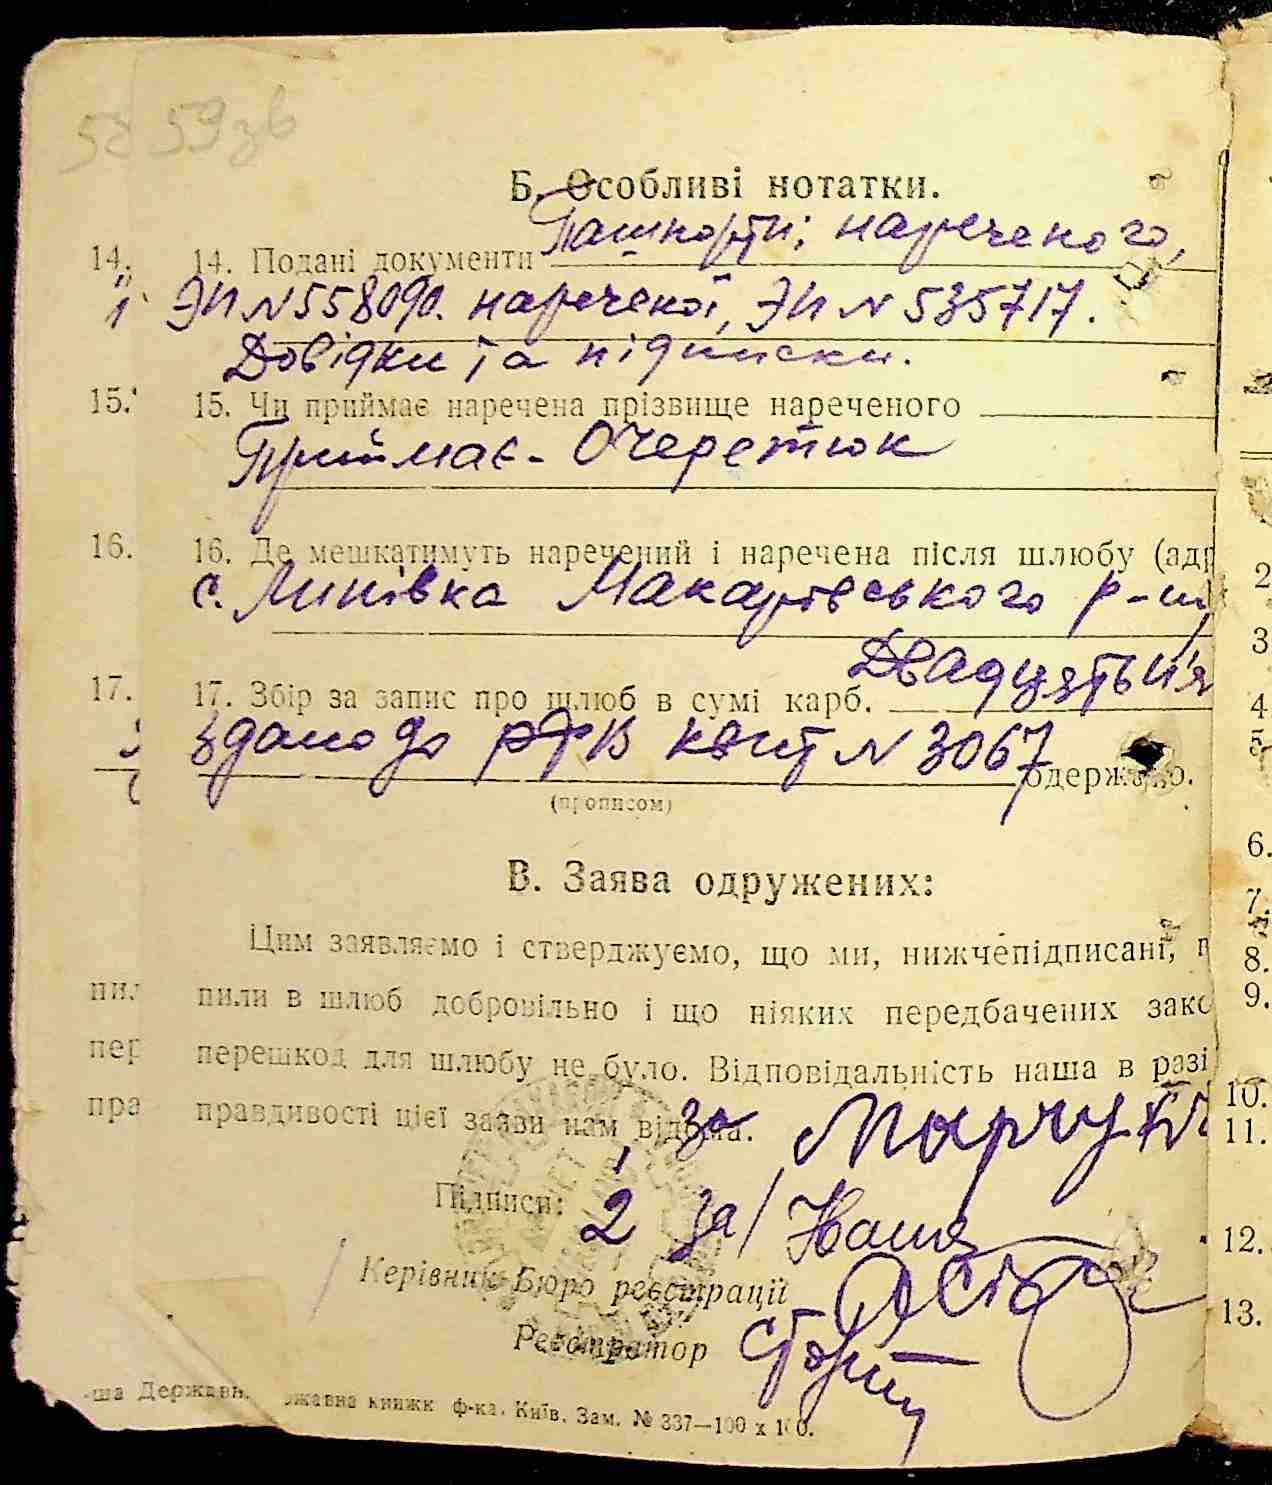 58 59зв
Б. Особливі нотатки.
14. 14. Подані документи Пашпорти; нареченого,
ЭП N 558090. нареченої, ЭП N 535717.
Довідки та підписки.
15. 15. Чи приймає наречена прізвище нареченого
Приймає - Очеретюк
16. 16. Де мешкатимуть наречений і наречена після шлюбу (адр
с. Липівка Макарівського р-ну
17. 17. Збір за запис про шлюб в сумі карб. Двадцятьп'я
здано до РФВ квит N 3067 одержано.
(прописом)
В. Заява одружених:
Цим заявляємо і стверджуємо, що ми, нижчепідписані,
пил пили в шлюб добровільно і що ніяких передбачених зако
пер перешкод для шлюбу не було. Відповідальність наша в разі
пра правдивості цієї заяви нам відома.
Підписи: 1 за
2 за
Керівник Бюро реєстрації
Реєстратор
Державна книжк ф-ка. Київ. Зам. № 337—100 х 100.
2
3
4
5
6.
7.
8.
9.
10.
11.
12.
13.